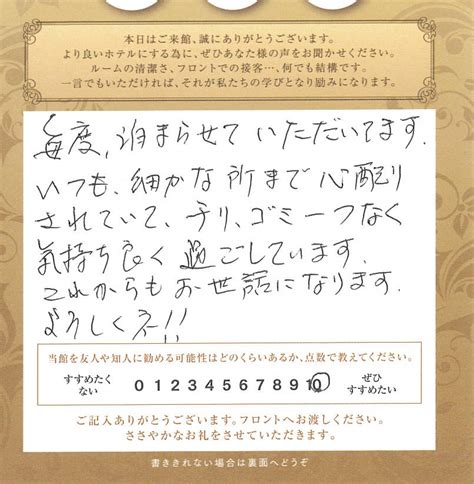 本日はご来館、誠にありがとうございます。
より良いホテルにする為に、ぜひあなた様の声をお聞かせください。
ルームの清潔さ、フロントでの接客…、何でも結構です。
一言でもいただければ、それが私たちの学びとなり励みになります。
毎度、泊まらせていただいてます。
いつも、細かな所まで心配り
されていて、チリ、ゴミ一つなく
気持ち良く過ごしています。
これからもお世話になります。
よろしくネ!!
当館を友人や知人に勧める可能性はどのくらいあるか、点数で教えてください。
すすめたく
ない
0 1 2 3 4 5 6 7 8 9 10
ぜひ
すすめたい
ご記入ありがとうございます。フロントへお渡しください。
ささやかなお礼をさせていただきます。
書ききれない場合は裏面へどうぞ